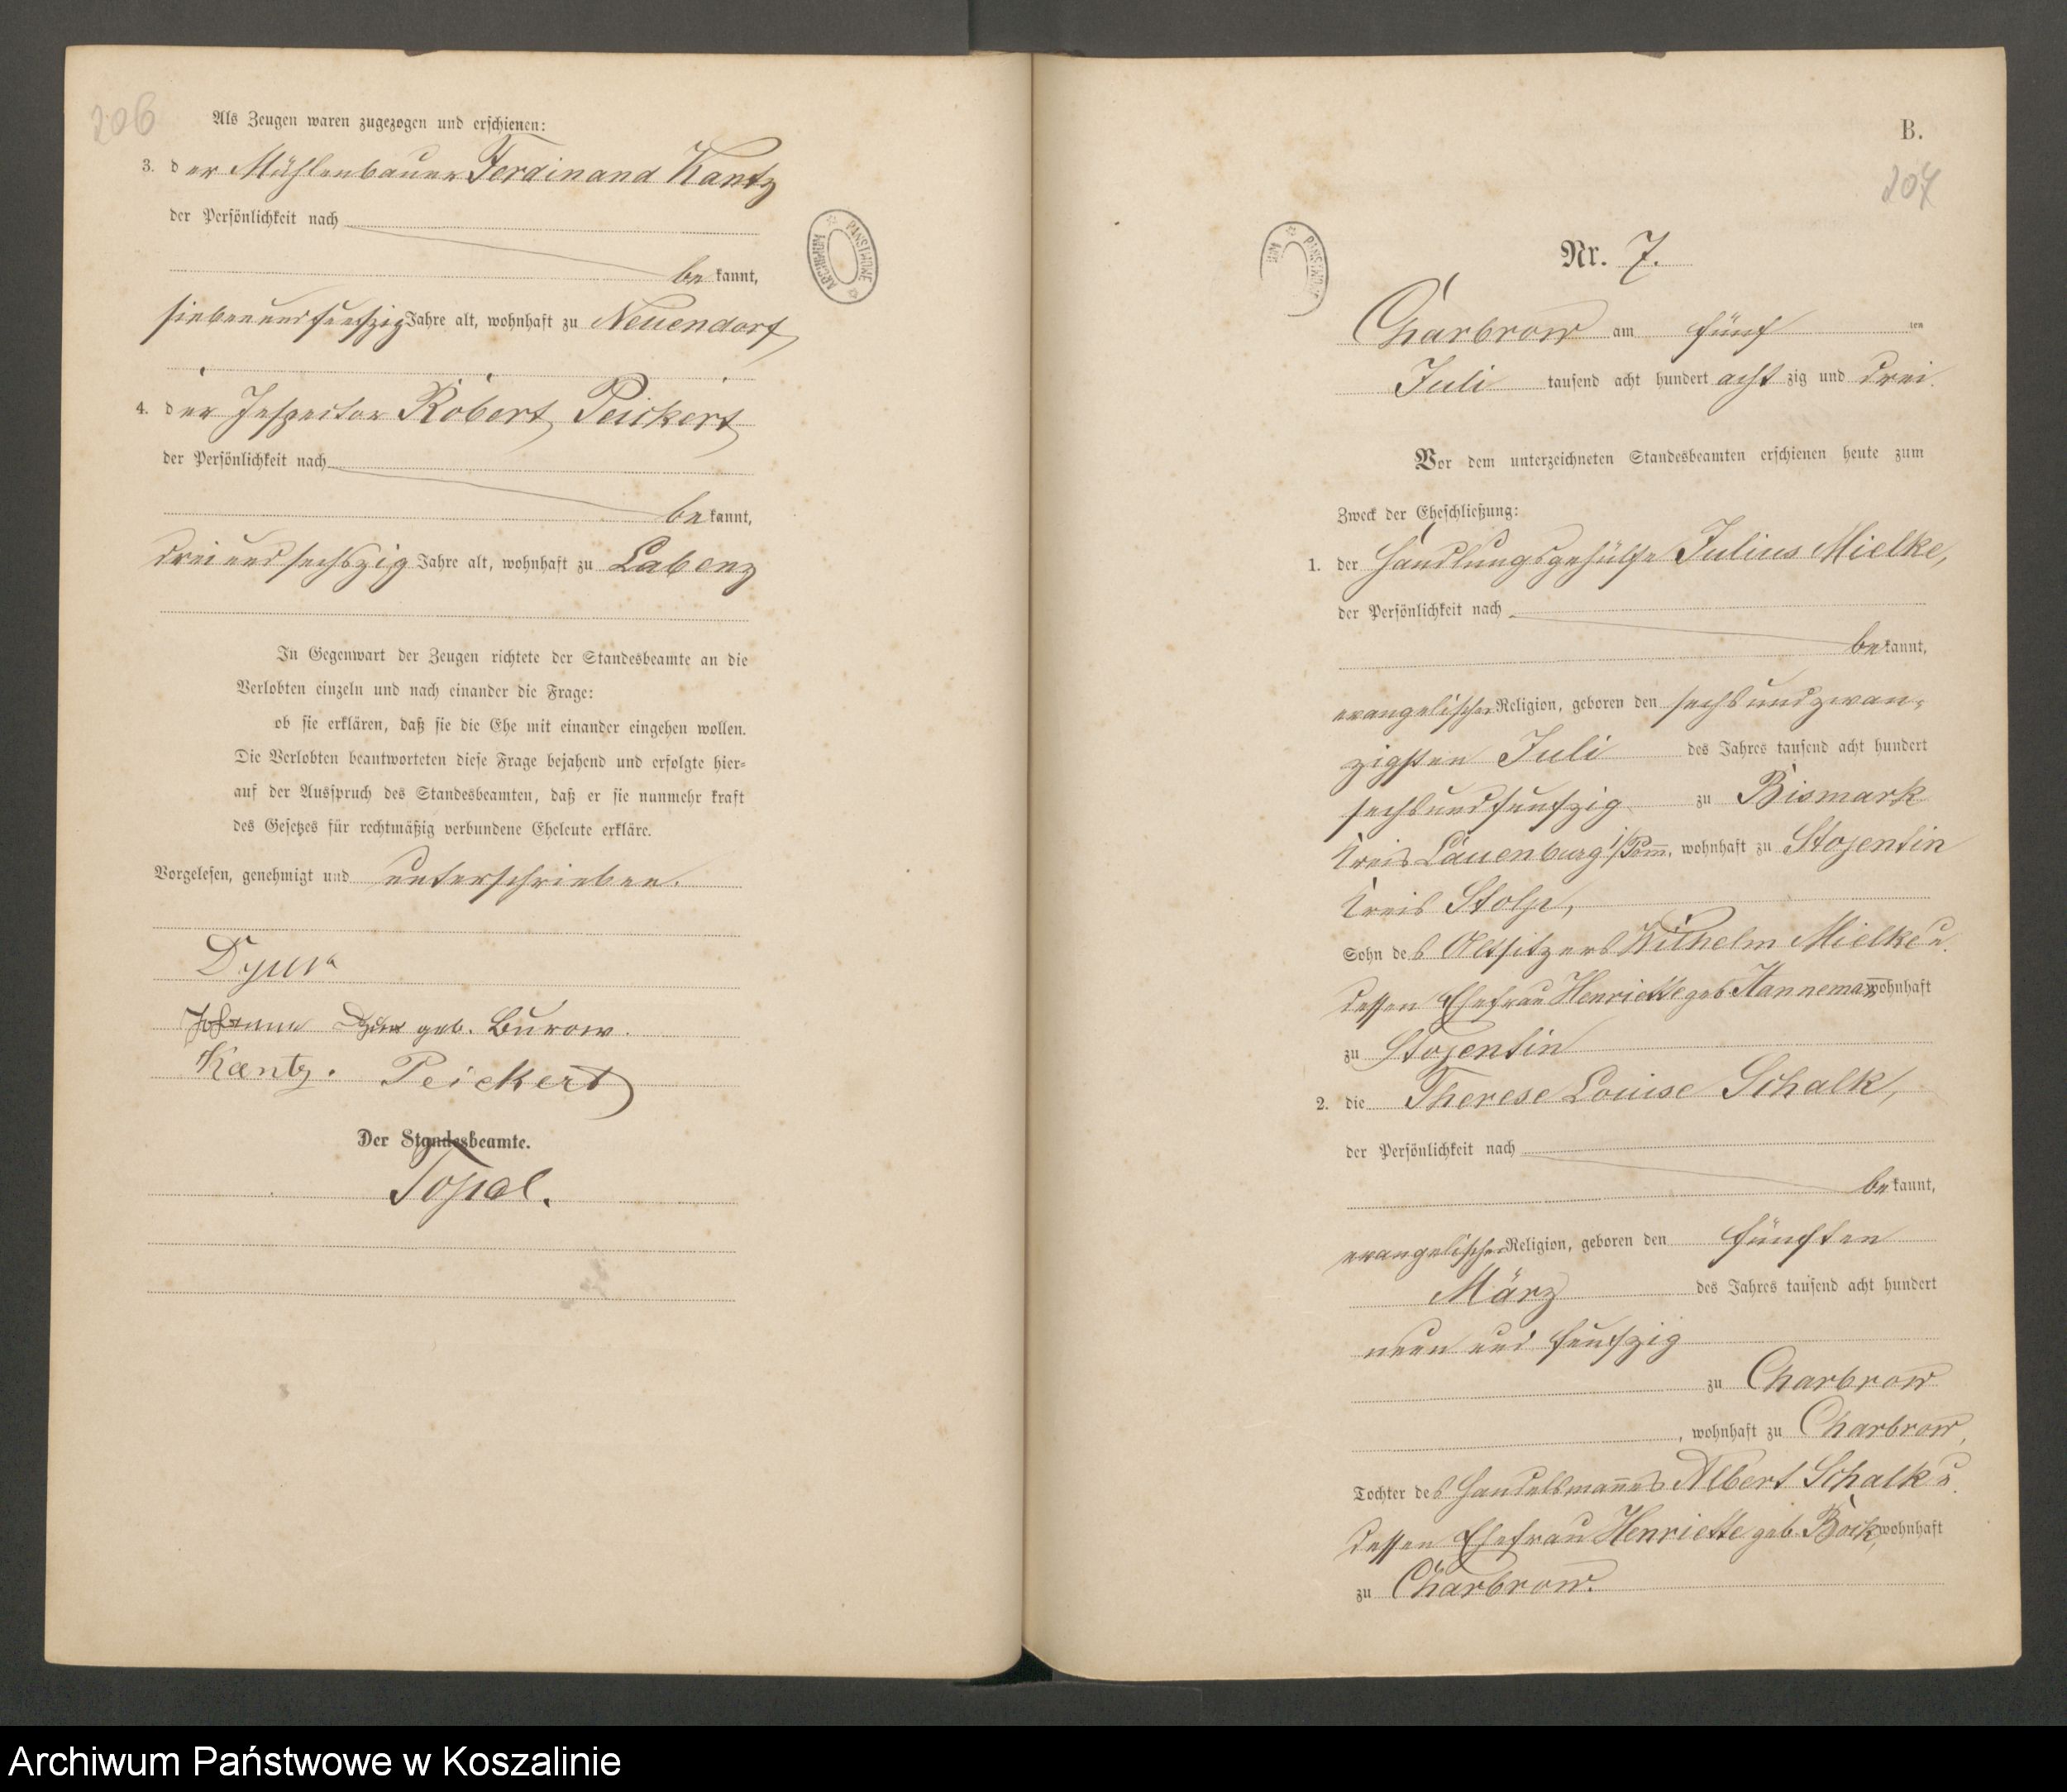 206
Als Zeugen waren zugezogen und erschienen:
3. der Mühlenbauer Ferdinand Kantz
der Persönlichkeit nach
bekannt,
siebenundfunfzig Jahre alt, wohnhaft zu Neuendorf,
4. der Inspector Robert Peickert
der Persönlichkeit nach
bekannt,
dreiundsechszig Jahre alt, wohnhaft zu Labenz
In Gegenwart der Zeugen richtete der Standesbeamte an die
Verlobten einzeln und nach einander die Frage:
ob sie erklären, daß sie die Ehe mit einander eingehen wollen.
Die Verlobten beantworteten diese Frage bejahend und erfolgte hier-
auf der Ausspruch des Standesbeamten, daß er sie nunmehr kraft
des Gesetzes für rechtmäßig verbundene Eheleute erkläre.
Vorgelesen, genehmigt und unterschrieben.
Johanne geb. Burow.
Kantz. Peickert
Der Standesbeamte.
ARCHIWUM PAŃSTWOWE
B.
207
Nr. 7.
Charbrow am fünf ten
Juli tausend acht hundert achtzig und drei.
Vor dem unterzeichneten Standesbeamten erschienen heute zum
Zweck der Eheschließung:
1. der Handlungsgehülfe Julius Mielke,
der Persönlichkeit nach
bekannt,
evangelischer Religion, geboren den sechsundzwan-
zigsten Juli des Jahres tausend acht hundert
sechsundfunfzig zu Bismark
Kreis Lauenburg i/Pom̄., wohnhaft zu Stojentin
Kreis Stolp,
Sohn des Altsitzers Wilhelm Mielke u.
dessen Ehefrau Henriette geb. Hanneman̄ wohnhaft
zu Stojentin
2. die Therese Louise Schalk,
der Persönlichkeit nach
bekannt,
evangelischer Religion, geboren den fünften
März des Jahres tausend acht hundert
neun und funfzig
zu Charbrow
, wohnhaft zu Charbrow,
Tochter des Handelsman̄es Albert Schalk u.
dessen Ehefrau Henriette geb. Bock, wohnhaft
zu Charbrow.
Archiwum Państwowe w Koszalinie